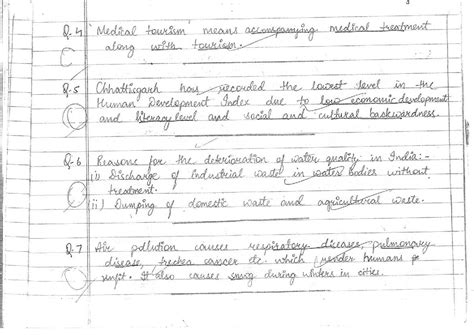 Q.4 'Medical tourism' means accompanying medical treatment
along with tourism.
Q.5 Chhattisgarh has recorded the lowest level in the
Human Development Index due to low economic development
and literacy level and social and cultural backwardness.
Q.6 Reasons for the deterioration of water quality in India:-
i) Discharge of industrial waste in water bodies without
treatment.
ii) Dumping of domestic waste and agricultural waste.
Q.7 Air pollution causes respiratory diseases, pulmonary
disease, trachea cancer etc which render humans
unfit. It also causes smog during winters in cities.